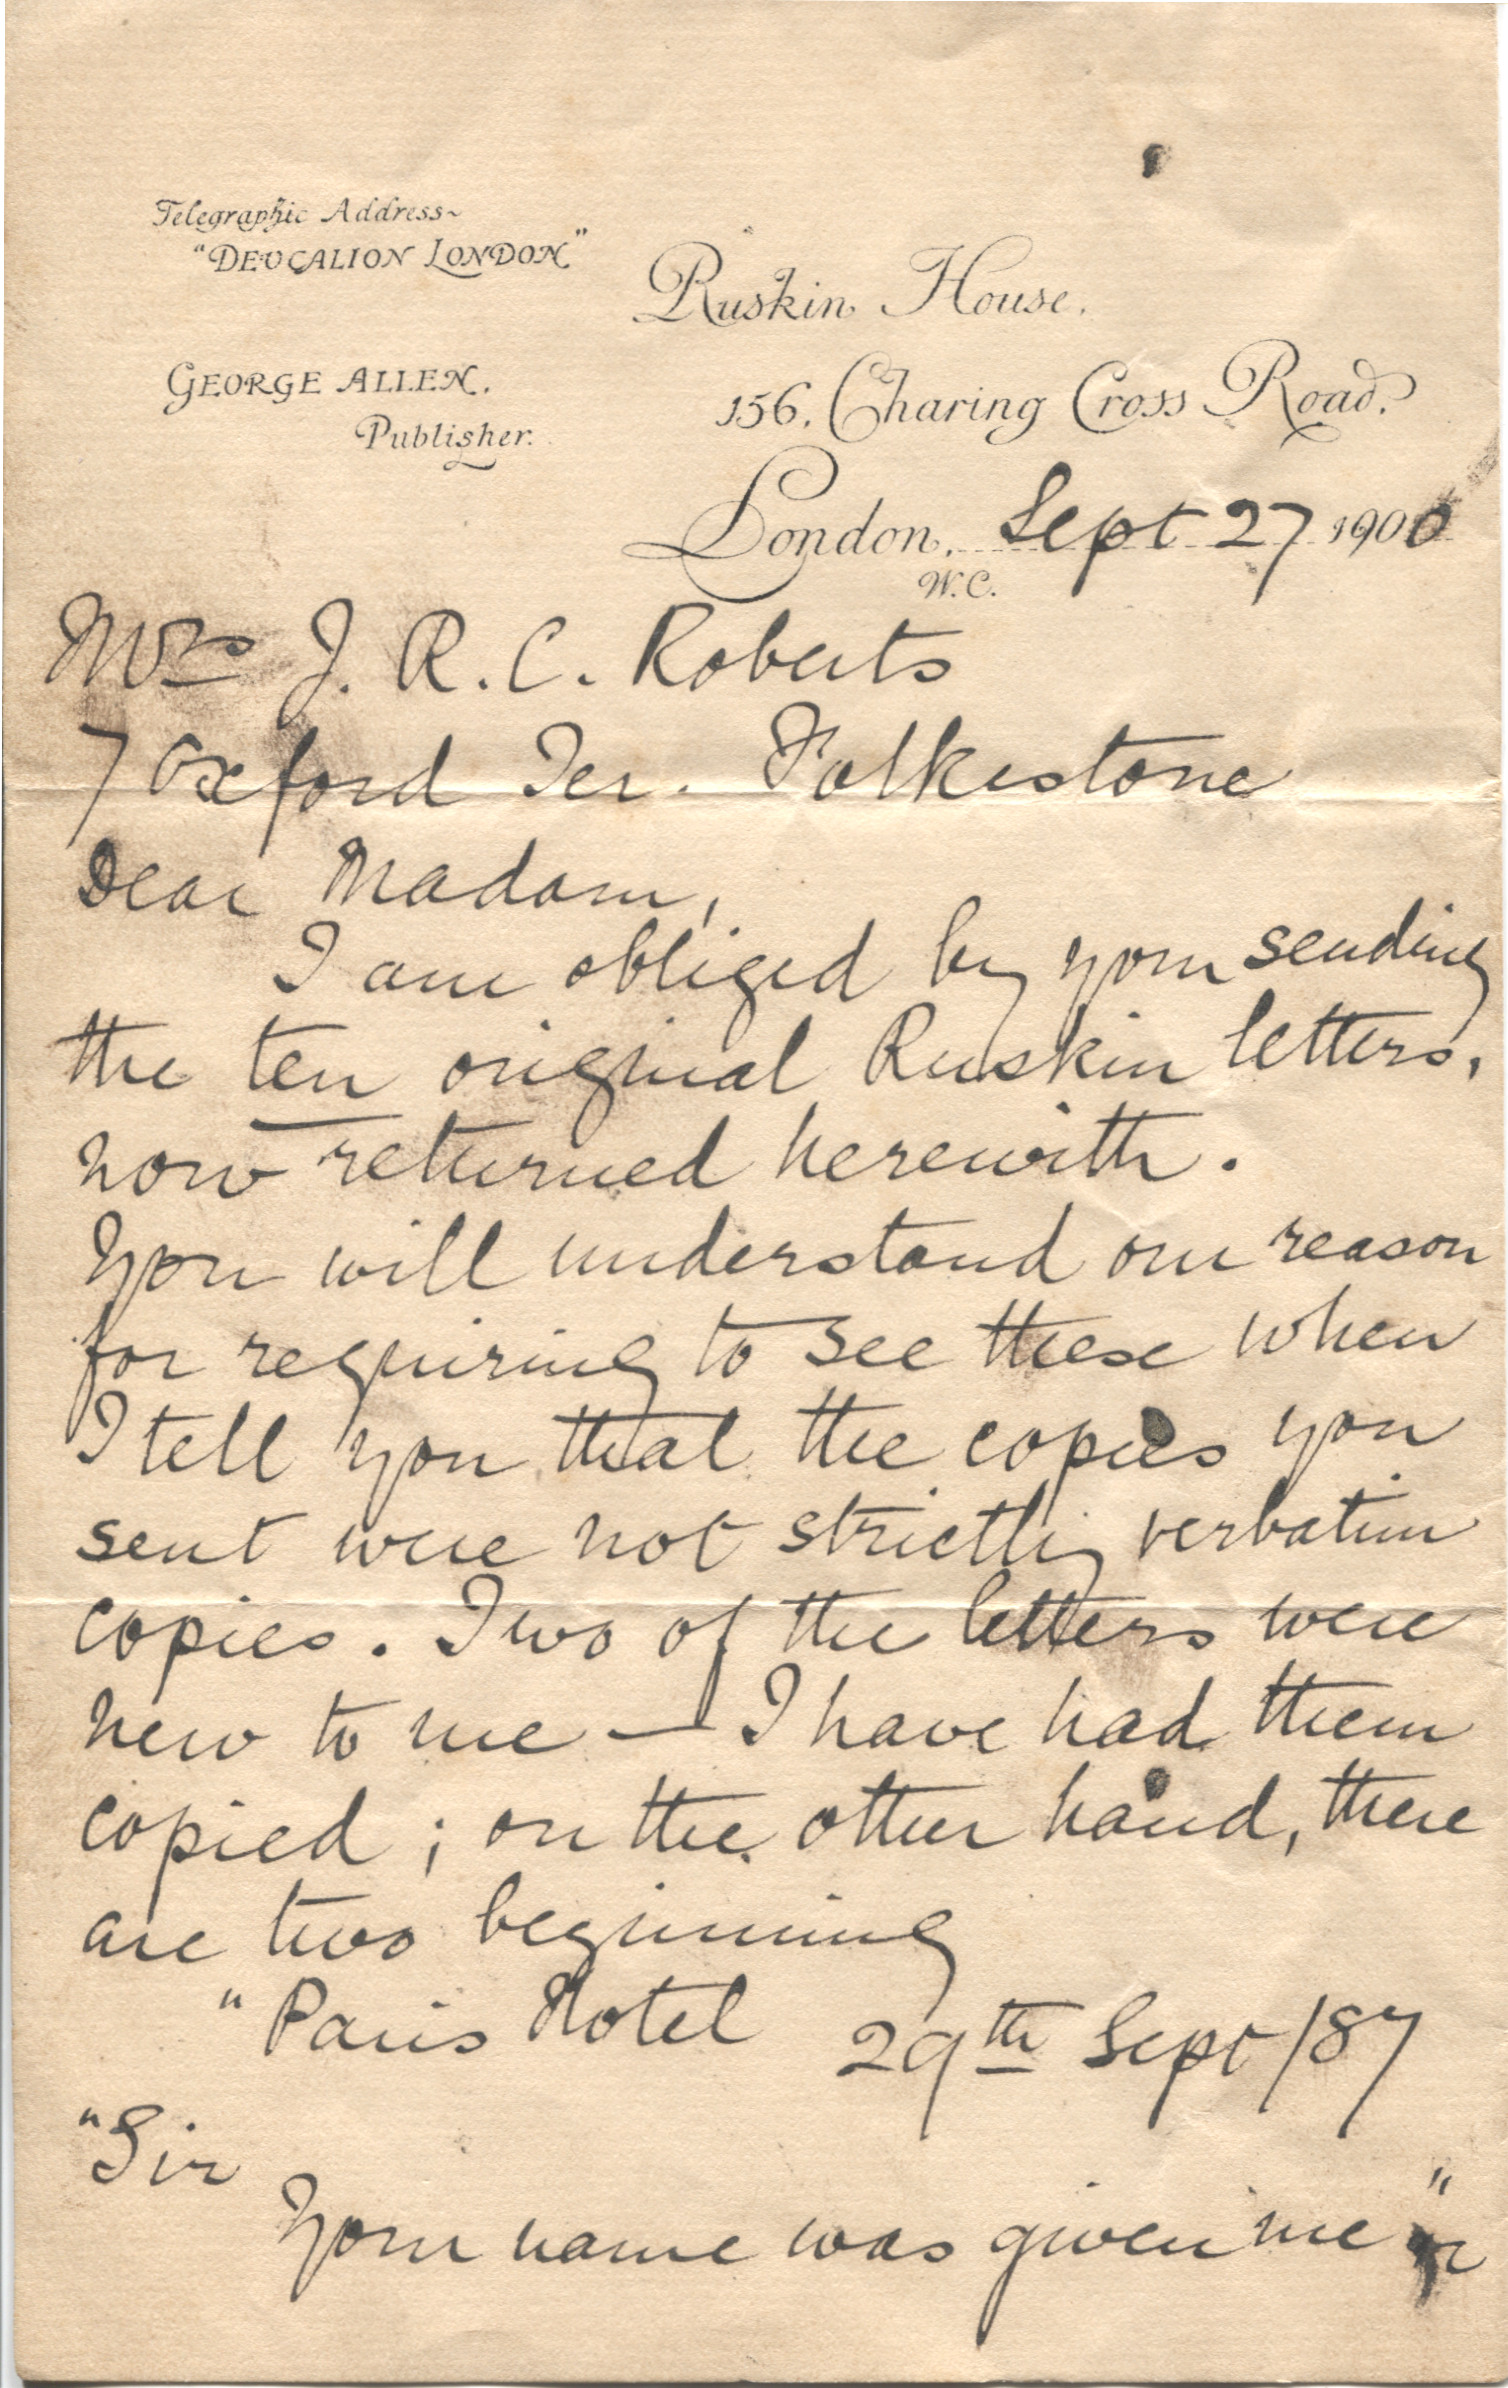 Telegraphic Address~
"DEUCALION LONDON"
GEORGE ALLEN.
Publisher.
Ruskin House.
156, Charing Cross Road.
London, Sept 27 1900
W.C.
Mrs J. R. C. Roberts
7 Oxford Ter. Folkestone
Dear Madam,
I am obliged by your sending
the ten original Ruskin letters,
now returned herewith.
You will understand our reason
for requiring to see these when
I tell you that the copies you
sent were not strictly verbatim
copies. Two of the letters were
new to me — I have had them
copied; on the other hand, there
are two beginning
"Paris Hotel 29th Sept/87
"Sir
Your name was given me"